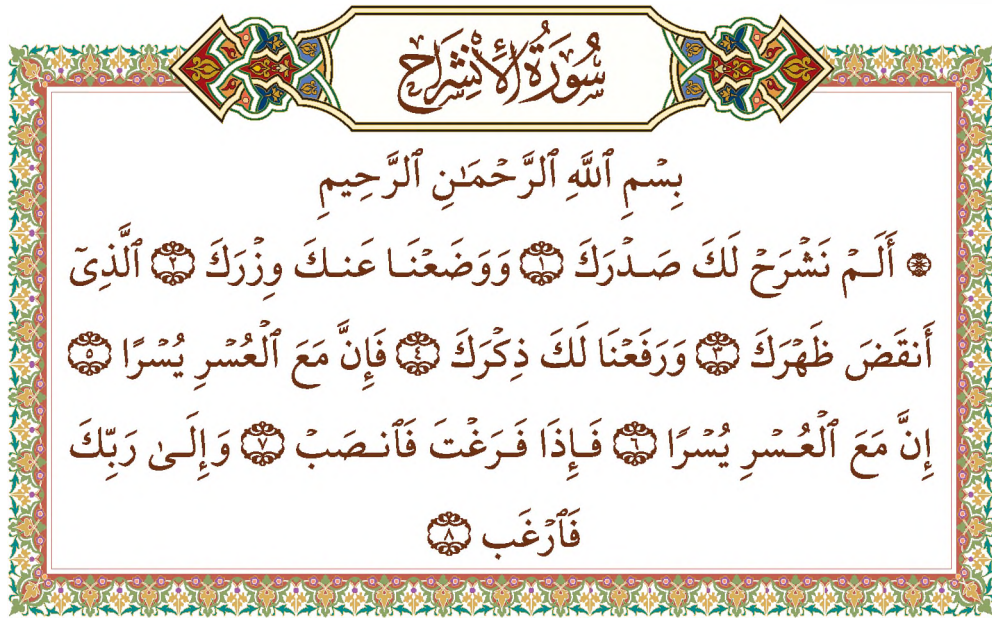 سُورَةُ الإِنْشِرَاحِ
بِسۡمِ ٱللَّهِ ٱلرَّحۡمَـٰنِ ٱلرَّحِيمِ
۞ أَلَـمۡ نَشۡرَحۡ لَكَ صَـدۡرَكَ ١ وَوَضَعۡنَـا عَنـكَ وِزۡرَكَ ٢ ٱلَّذِىٓ
أَنقَضَ ظَهۡرَكَ ٣ وَرَفَعۡنَا لَكَ ذِكۡرَكَ ٤ فَإِنَّ مَعَ ٱلۡعُسۡرِ يُسۡرًا ٥
إِنَّ مَعَ ٱلۡعُـسۡرِ يُسۡرًا ٦ فَـإِذَا فَـرَغۡتَ فَٱنـصَبۡ ٧ وَإِلَـىٰ رَبِّكَ
فَٱرۡغَب ٨